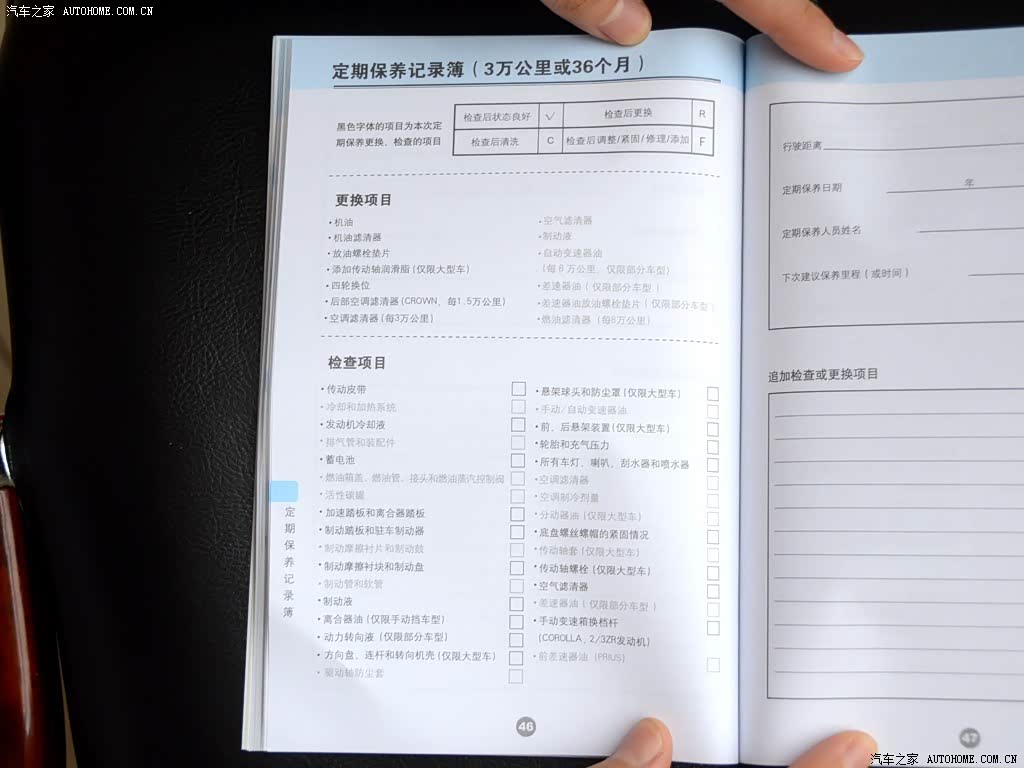 汽车之家 AUTOHOME.COM.CN
定期保养记录簿（3万公里或36个月）
黑色字体的项目为本次定
期保养更换、检查的项目
检查后状态良好 √ 检查后更换 R
检查后清洗 C 检查后调整/紧固/修理/添加 F
更换项目
·机油
·机油滤清器
·放油螺栓垫片
·添加传动轴润滑脂(仅限大型车)
·四轮换位
·后部空调滤清器(CROWN、每1.5万公里)
·空调滤清器(每3万公里)
·空气滤清器
·制动液
·自动变速器油
(每8万公里、仅限部分车型)
·差速器油（仅限部分车型）
·差速器油放油螺栓垫片（仅限部分车型）
·燃油滤清器（每8万公里）
检查项目
·传动皮带
·冷却和加热系统
·发动机冷却液
·排气管和装配件
·蓄电池
·燃油箱盖、燃油管、接头和燃油蒸汽控制阀
·活性碳罐
·加速踏板和离合器踏板
·制动踏板和驻车制动器
·制动摩擦衬片和制动鼓
·制动摩擦衬块和制动盘
·制动管和软管
·制动液
·离合器油(仅限手动挡车型)
·动力转向液（仅限部分车型)
·方向盘、连杆和转向机壳(仅限大型车)
·驱动轴防尘套
·悬架球头和防尘罩(仅限大型车)
·手动/自动变速器油
·前、后悬架装置(仅限大型车)
·轮胎和充气压力
·所有车灯、喇叭、刮水器和喷水器
·空调滤清器
·空调制冷剂量
·分动器油(仅限大型车)
·底盘螺丝螺帽的紧固情况
·传动轴套(仅限大型车)
·传动轴螺栓(仅限大型车)
·空气滤清器
·差速器油（仅限部分车型）
·手动变速箱换档杆
(COROLLA、2/3ZR发动机)
·前差速器油（PRIUS）
定期保养记录簿
46
行驶距离
定期保养日期 年
定期保养人员姓名
下次建议保养里程（或时间）
追加检查或更换项目
47
汽车之家 AUTOHOME.COM.CN